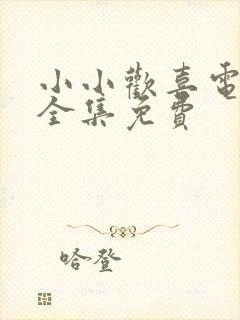 小小歡喜電
全集免費
哈登